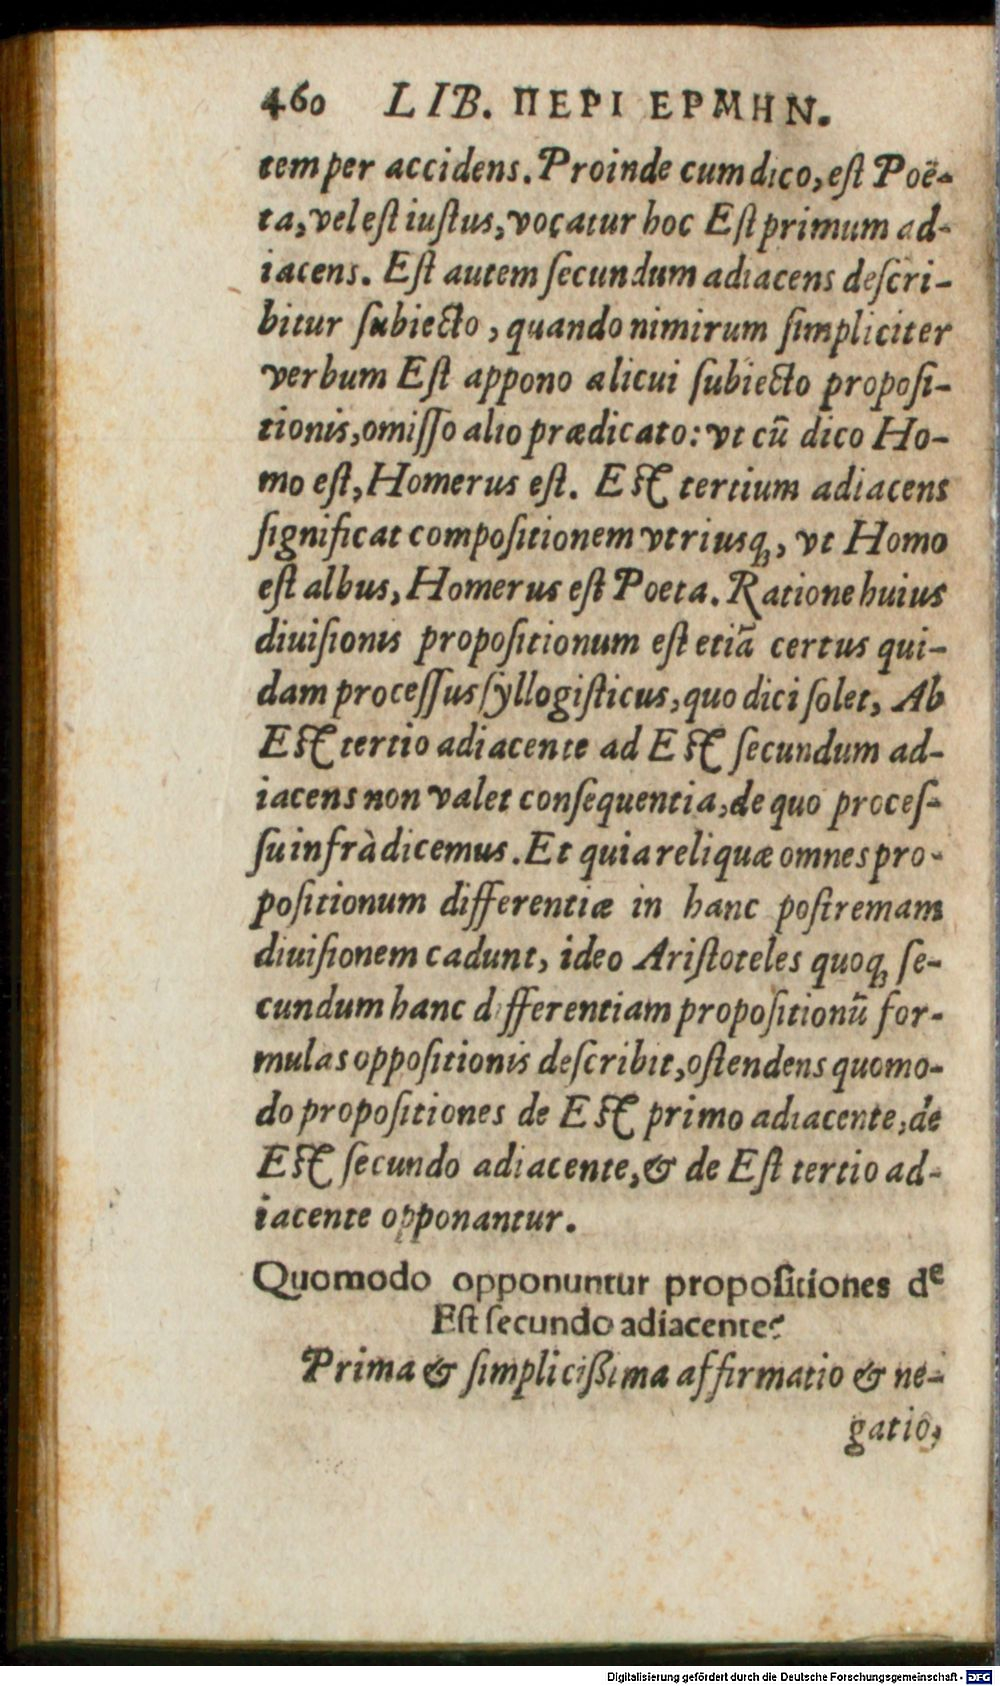 460 LIB. ΠΕΡΙ ΕΡΜΗΝ.
tem per accidens. Proinde cum dico, eſt Poë-
ta, vel eſt iuſtus, vocatur hoc Eſt primum ad-
iacens. Eſt autem ſecundum adiacens deſcri-
bitur ſubiecto, quando nimirum ſimpliciter
verbum Eſt appono alicui ſubiecto propoſi-
tionis, omiſſo alio prædicato: vt cū dico Ho-
mo eſt, Homerus eſt. Eſt tertium adiacens
ſignificat compoſitionem vtriusq;, vt Homo
eſt albus, Homerus eſt Poeta. Ratione huius
diuiſionis propoſitionum eſt etiā certus qui-
dam proceſſus ſyllogiſticus, quo dici ſolet, Ab
Eſt tertio adiacente ad Eſt ſecundum ad-
iacens non valet conſequentia, de quo proceſ-
ſu infrà dicemus. Et quia reliquæ omnes pro-
poſitionum differentiæ in hanc poſtremam
diuiſionem cadunt, ideo Ariſtoteles quoq; ſe-
cundum hanc differentiam propoſitionū for-
mulas oppoſitionis deſcribit, oſtendens quomo-
do propoſitiones de Eſt primo adiacente, de
Eſt ſecundo adiacente, & de Eſt tertio ad-
iacente opponantur.
Quomodo opponuntur propoſitiones de
Eſt ſecundo adiacente?
Prima & ſimpliciſſima affirmatio & ne-
gatio,
Digitalisierung gefördert durch die Deutsche Forschungsgemeinschaft - DFG